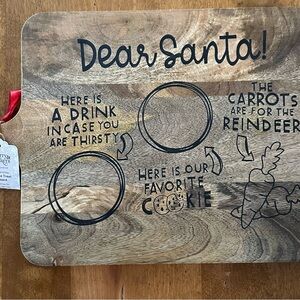 Dear Santa!
HERE IS
A DRINK
IN CASE YOU
ARE THIRSTY
THE
CARROTS
ARE FOR THE
REINDEER
HERE IS OUR
FAVORITE
COOKIE